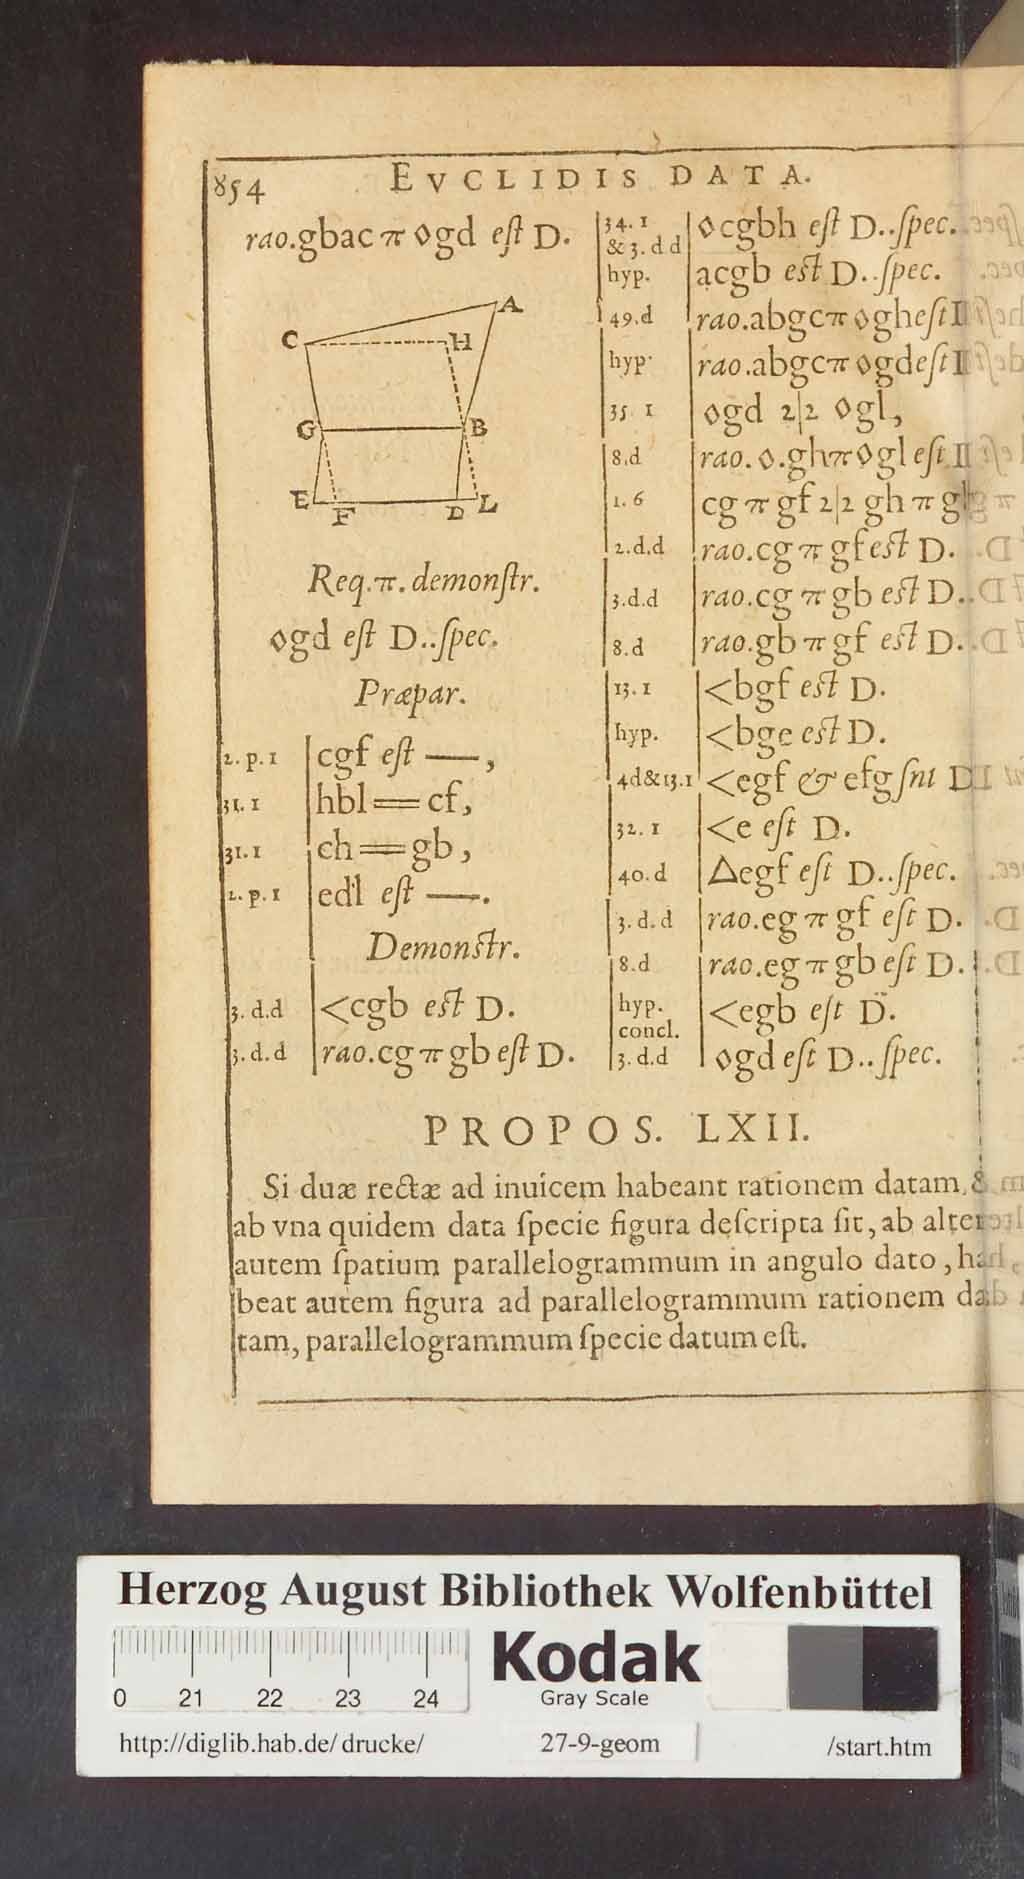 854 EVCLIDIS DATA.
rao.gbac π ◊gd est D.
A
C
H
G
B
E
F
D
L
Req.π. demonſtr.
◊gd eſt D..ſpec.
Præpar.
2. p. 1 cgf eſt —,
31. 1 hbl == cf,
31. 1 ch == gb,
2. p. 1 edl eſt —.
Demonſtr.
3. d.d <cgb eſt D.
3. d. d rao.cg π gb eſt D.
34. 1
& 3. d d ◊cgbh eſt D..ſpec.
hyp. acgb eſt D..ſpec.
49.d rao.abgc π ◊gh eſt
hyp. rao.abgc π ◊gd eſt
35 1 ◊gd 2|2 ◊gl,
8.d rao.◊.gh π ◊gl eſt
1. 6 cg π gf 2|2 gh π gl
2.d.d rao.cg π gf eſt D.
3.d.d rao.cg π gb eſt D.
8.d rao.gb π gf eſt D.
13. 1 <bgf eſt D.
hyp. <bge eſt D.
4d&13.1 <egf & efg ſnt D
32. 1 <e eſt D.
40.d △egf eſt D..ſpec.
3. d. d rao.eg π gf eſt D.
8.d rao.eg π gb eſt D.
hyp. <egb eſt D.
concl.
3. d.d ◊gd eſt D..ſpec.
PROPOS. LXII.
Si duæ rectæ ad inuicem habeant rationem datam, &
ab vna quidem data ſpecie figura deſcripta ſit, ab altera
autem ſpatium parallelogrammum in angulo dato, ha-
beat autem figura ad parallelogrammum rationem da-
tam, parallelogrammum ſpecie datum eſt.
Herzog August Bibliothek Wolfenbüttel
Kodak
Gray Scale
0 21 22 23 24
http://diglib.hab.de/drucke/ 27-9-geom /start.htm